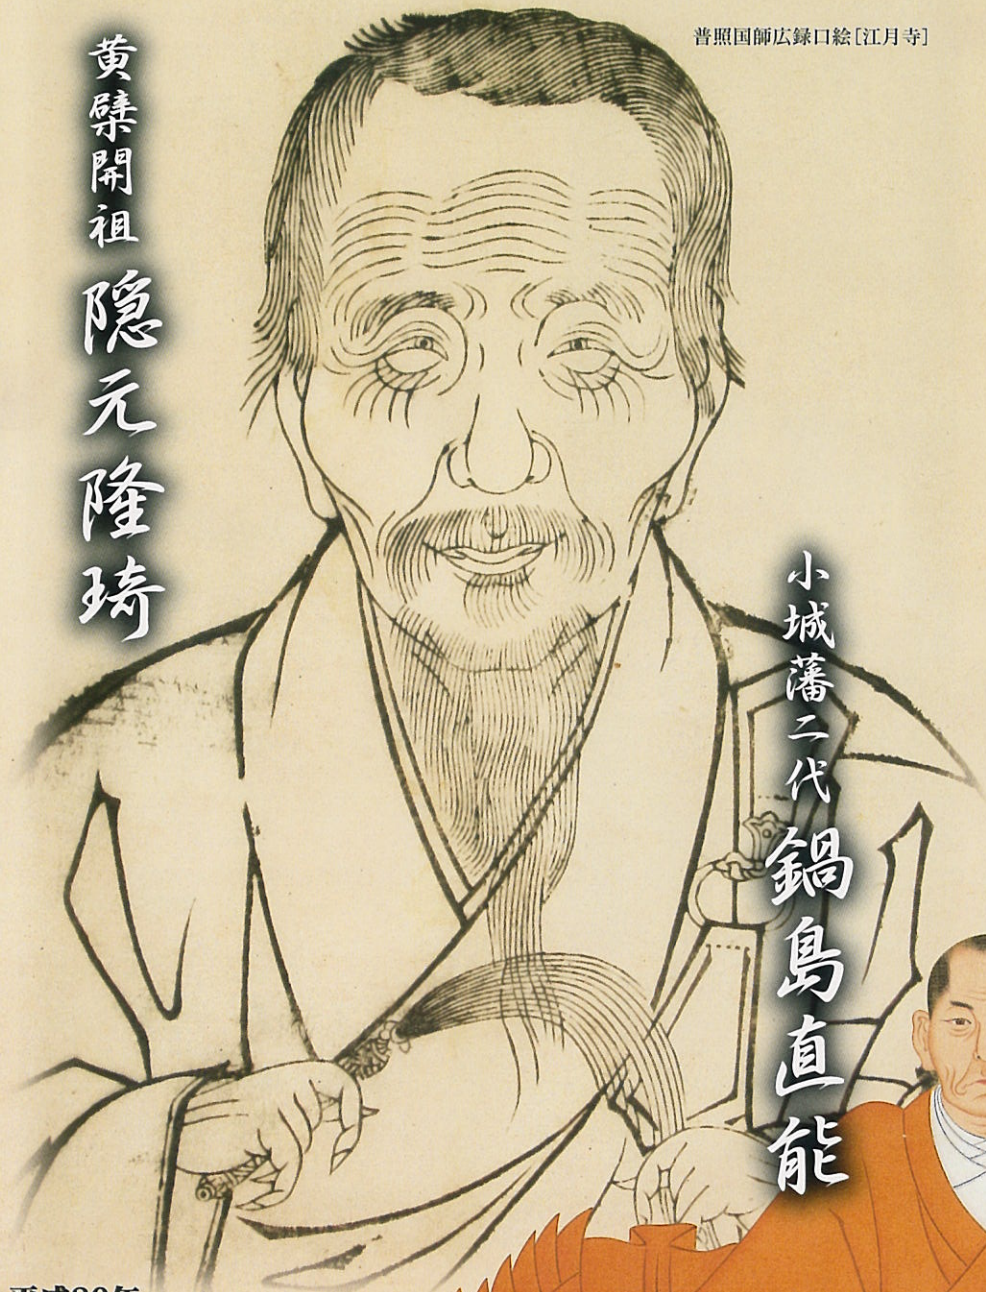 普照国師広録口絵[江月寺]
黄檗開祖 隠元隆琦
小城藩二代 鍋島直能